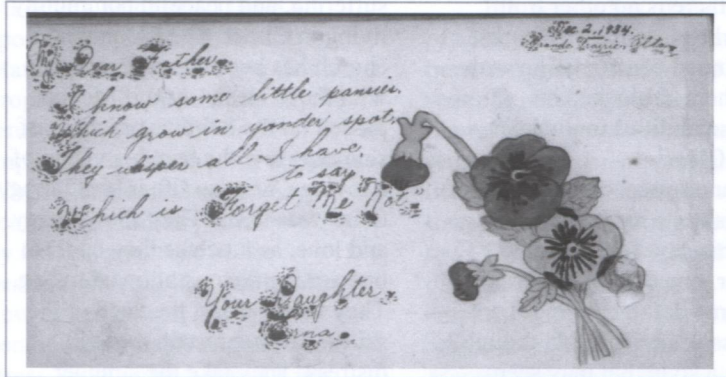 Dec 2, 1934.
Grande Prairie, Alta.
My Dear Father,
I know some little pansies.
Which grow in yonder spot,
They wisper all I have,
to say,
Which is "Forget Me Not"
Your Daughter